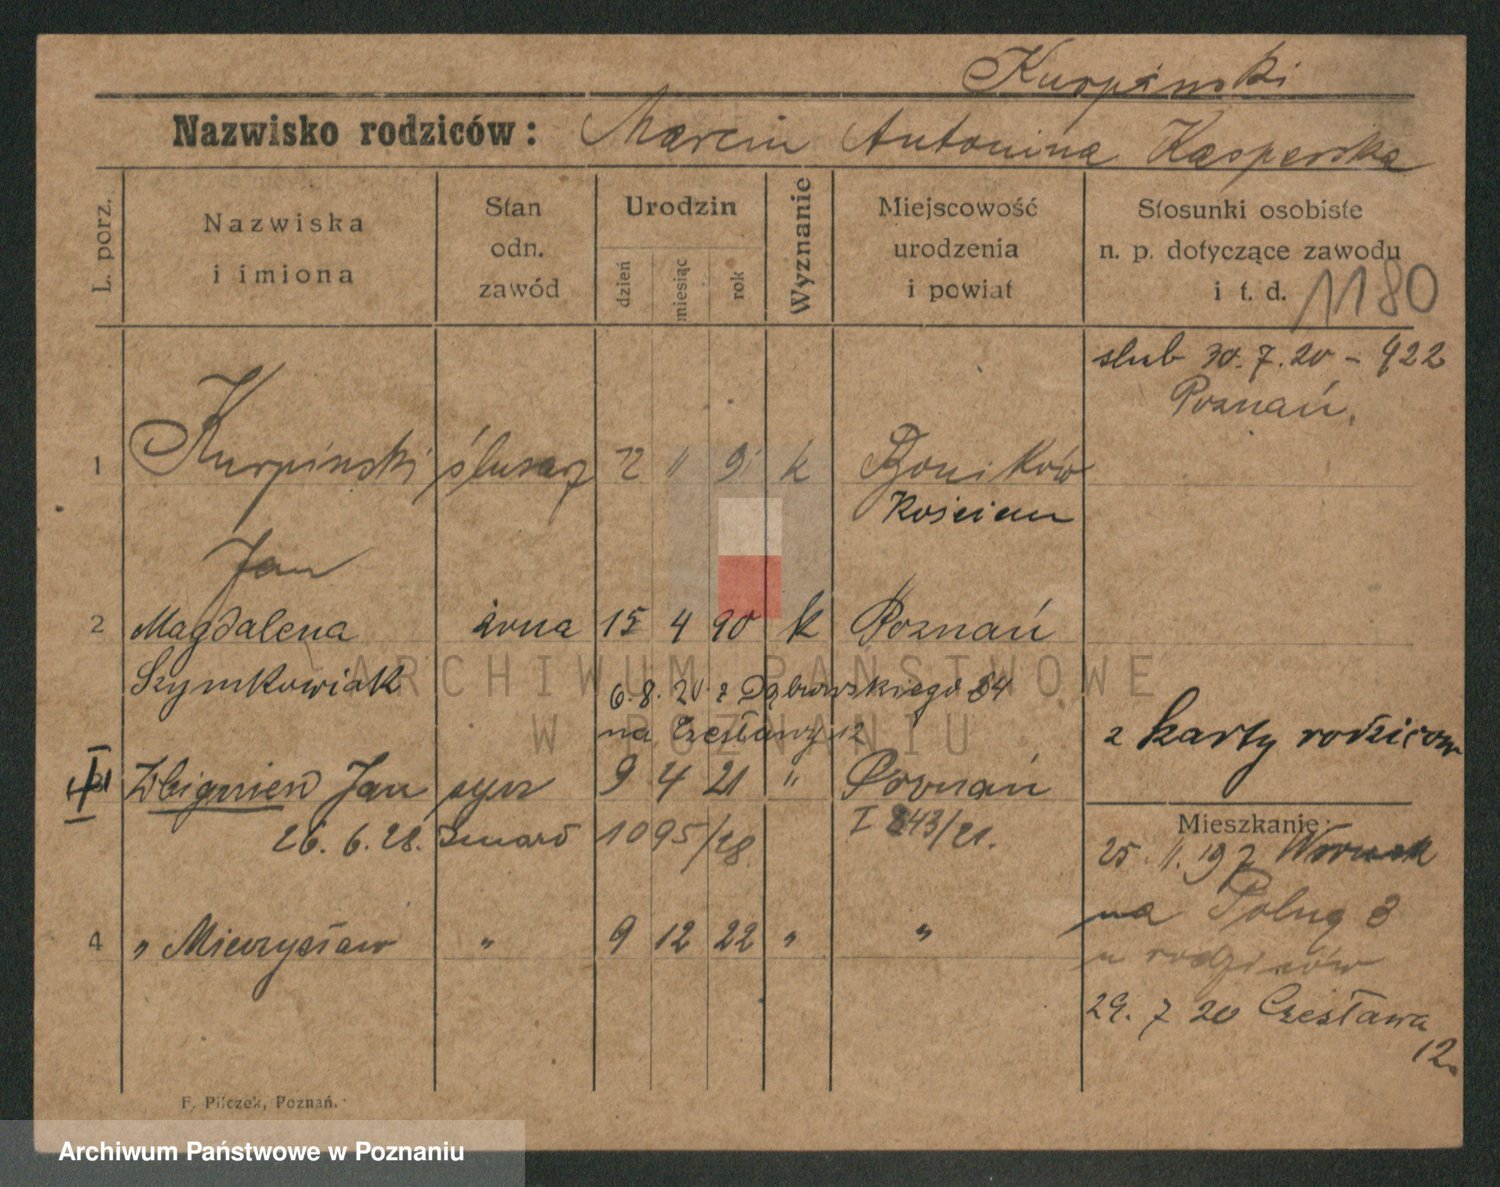 Kurpiński
Nazwisko rodziców: Marcin Antonina Kasperska
L. porz.
Nazwiska
i imiona
Stan
odn.
zawód
Urodzin
dzień
miesiąc
rok
Wyznanie
Miejscowość
urodzenia
i powiat
Stosunki osobiste
n. p. dotyczące zawodu
i t. d.
1180
slub 30.7.20 - 922
Poznań.
1 Kurpiński ślusarz 2 11 91 k Boników
Kościan
Jan
2 Magdalena żona 15 4 90 k Poznań
Szymkowiak
6.8.20 z Dąbrowskiego 84
na Czesławy 12
z karty rodziców
Zbigniew Jan syn 9 4 21 " Poznań
26.6.28. zmarł 1095/28 I 843/21.
Mieszkanie:
25.11.19 z
na Polną 3
u rodziców
4 " Mieczysław " 9 12 22 " "
29.7 20 Czesława
12.
F. Pilczek, Poznań.
ARCHIWUM PAŃSTWOWE
W POZNANIU
Archiwum Państwowe w Poznaniu